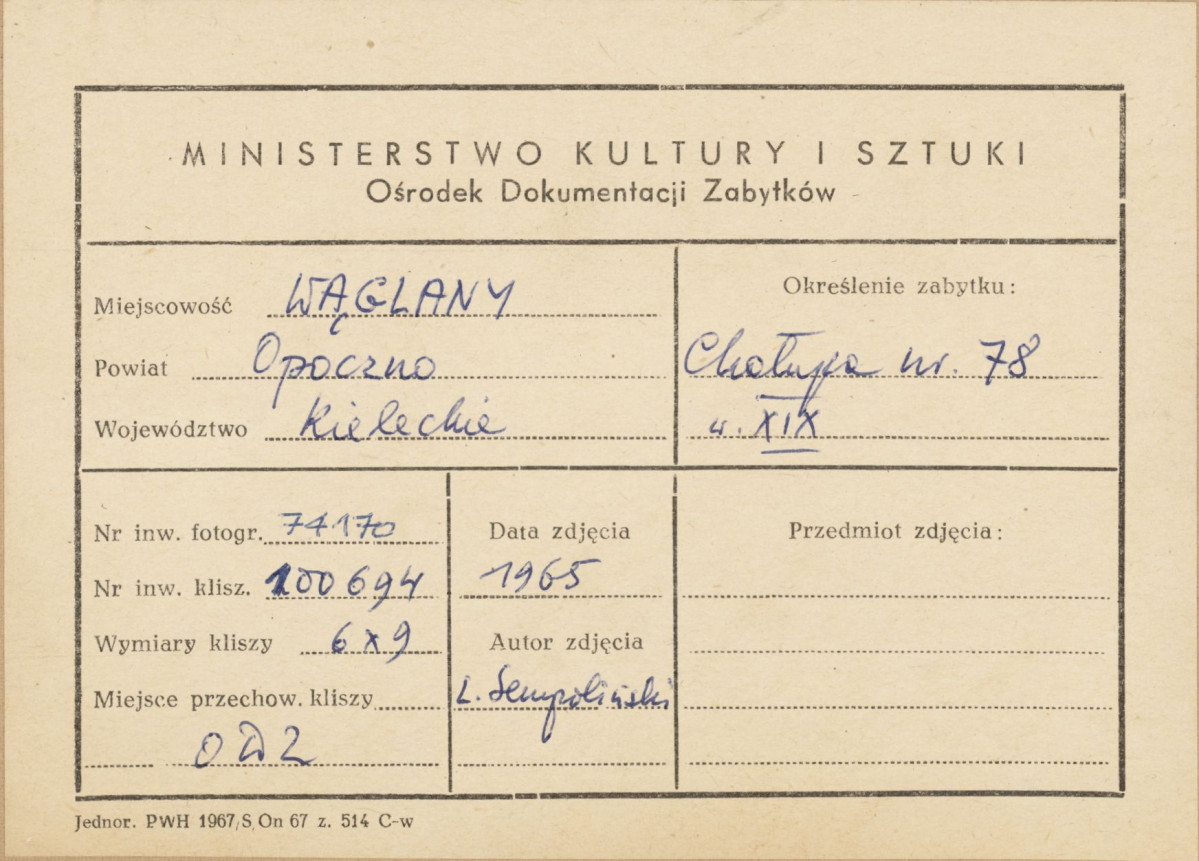 MINISTERSTWO KULTURY I SZTUKI
Ośrodek Dokumentacji Zabytków
Miejscowość WĄGLANY
Powiat Opoczno
Województwo Kieleckie
Określenie zabytku:
Chałupa nr. 78
w. XIX
Nr inw. fotogr. 74170
Nr inw. klisz. 100694
Wymiary kliszy 6x9
Miejsce przechow. kliszy
ODZ
Data zdjęcia
1965
Autor zdjęcia
L. Sempoliński
Przedmiot zdjęcia:
Jednor. PWH 1967/S On 67 z. 514 C-w